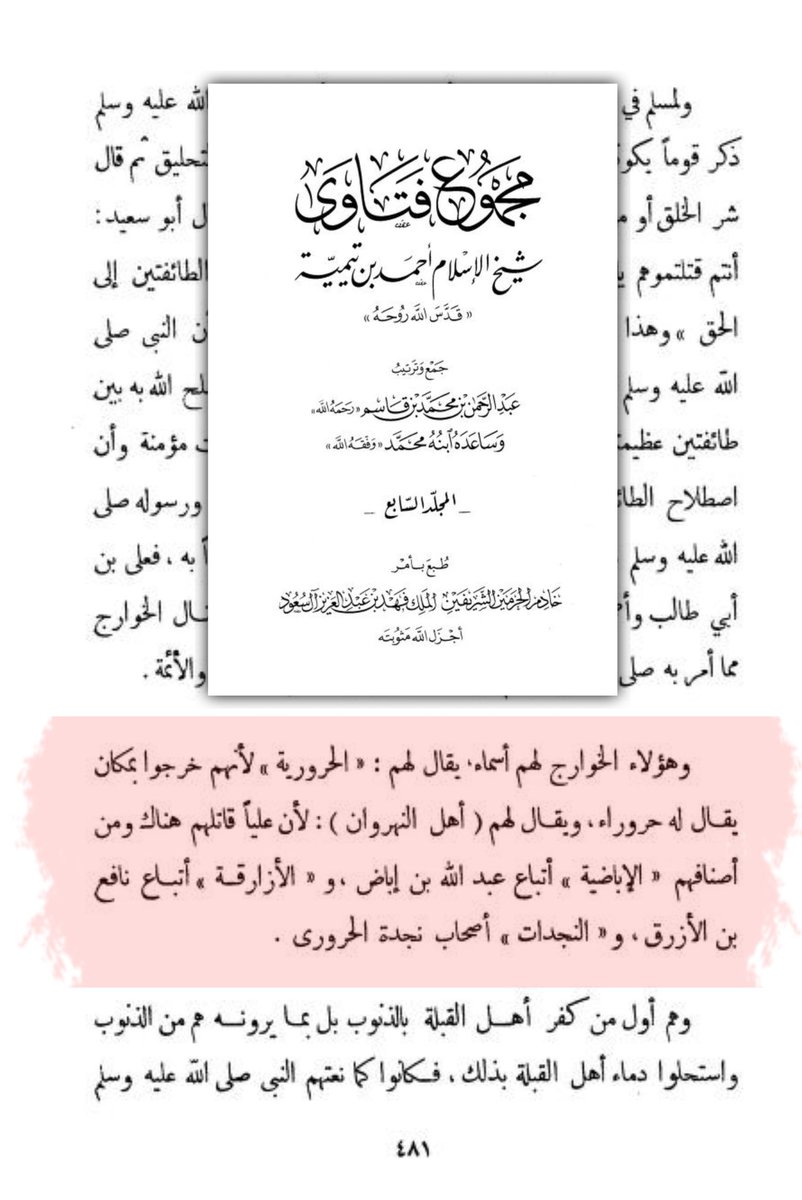 ولمسلم في الله عليه وسلم
ذكر قوماً ثم قال
شر الخلق أو أبو سعيد :
أنتم قتلتموهم الطائفتين إلى
الحق » وهذا النبي صلى
الله عليه وسلم الله به بين
طائفتين مؤمنة وأن
اصطلاح ورسوله صلى
الله عليه وسلم به ، فعلى بن
أبي طالب الخوارج
مما أمر به صلى والأئمة .
مجموع فتاوى
شيخ الإسلام أحمد بن تيمية
« قدس الله روحه »
جمع وترتيب
عبد الرحمن بن محمد بن قاسم « رحمه الله »
وساعده ابنه محمد « وفقه الله »
_ المجلد السابع _
طبع بأمر
خادم الحرمين الشريفين الملك فهد بن عبد العزيز آل سعود
أجزل الله مثوبته
وهؤلاء الخوارج لهم أسماء، يقال لهم : « الحرورية » لأنهم خرجوا بمكان
يقال له حروراء، ويقال لهم ( أهل النهروان ) : لأن علياً قاتلهم هناك ومن
أصنافهم « الإباضية » أتباع عبد الله بن إباض ، و « الأزارقة » أتباع نافع
بن الأزرق ، و « النجدات » أصحاب نجدة الحرورى .
وهم أول من كفر أهل القبلة بالذنوب بل بما يرونه هم من الذنوب
واستحلوا دماء أهل القبلة بذلك ، فكانوا كما نعتهم النبي صلى الله عليه وسلم
٤٨١